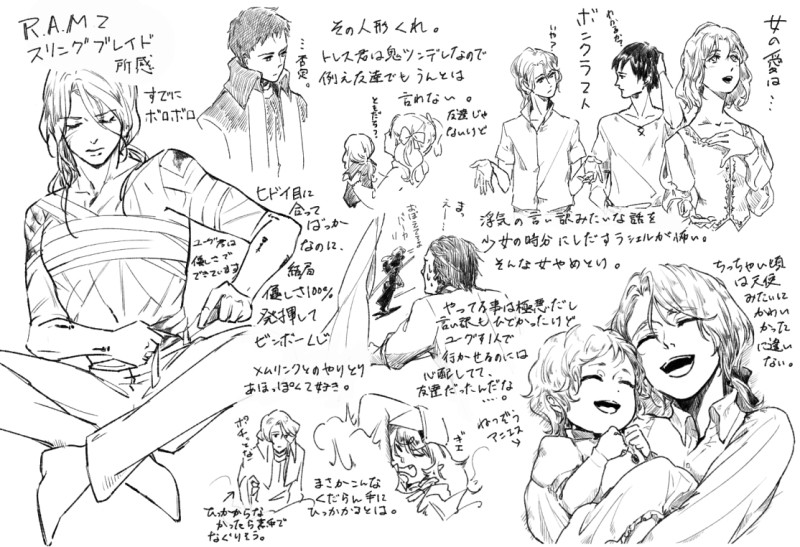 R.A.M 2
スリングブレイド
所感
すでに
ボロボロ
…否定。
その人形くれ。
トレス君は鬼ツンデレなので
例え友達でも うんとは
言わない。
友達じゃ
ないけど
ともだち?
いや?
ボンクラスト
わかるか?
女の愛は…
ヒドイ目に
合って
ばっか
なのに、
結局
優しさ100%
発揮して
ビンボーくじ
ユーグ君は
優しさで
できています
メムリンクとのやりとり
あほっぽくて好き。
えー
まっ
浮気の言い訳みたいな話を
少女の時分にしだすラシェルが怖い。
そんな女やめとり。
やってる事は極悪だし
言い訳もひどかったけど
ユーグを1人で
行かせるのには
心配してて、
友達だったんだな
……。
ちっちゃい頃
は天使
みたいに
かわい
かった
に違い
ない。
ねつぞう
アニエス
ポチッとな
ひっかからな
かったら素手で
なぐりそう。
まさかこんな
くだらん手に
ひっかかるとは。
ギエ